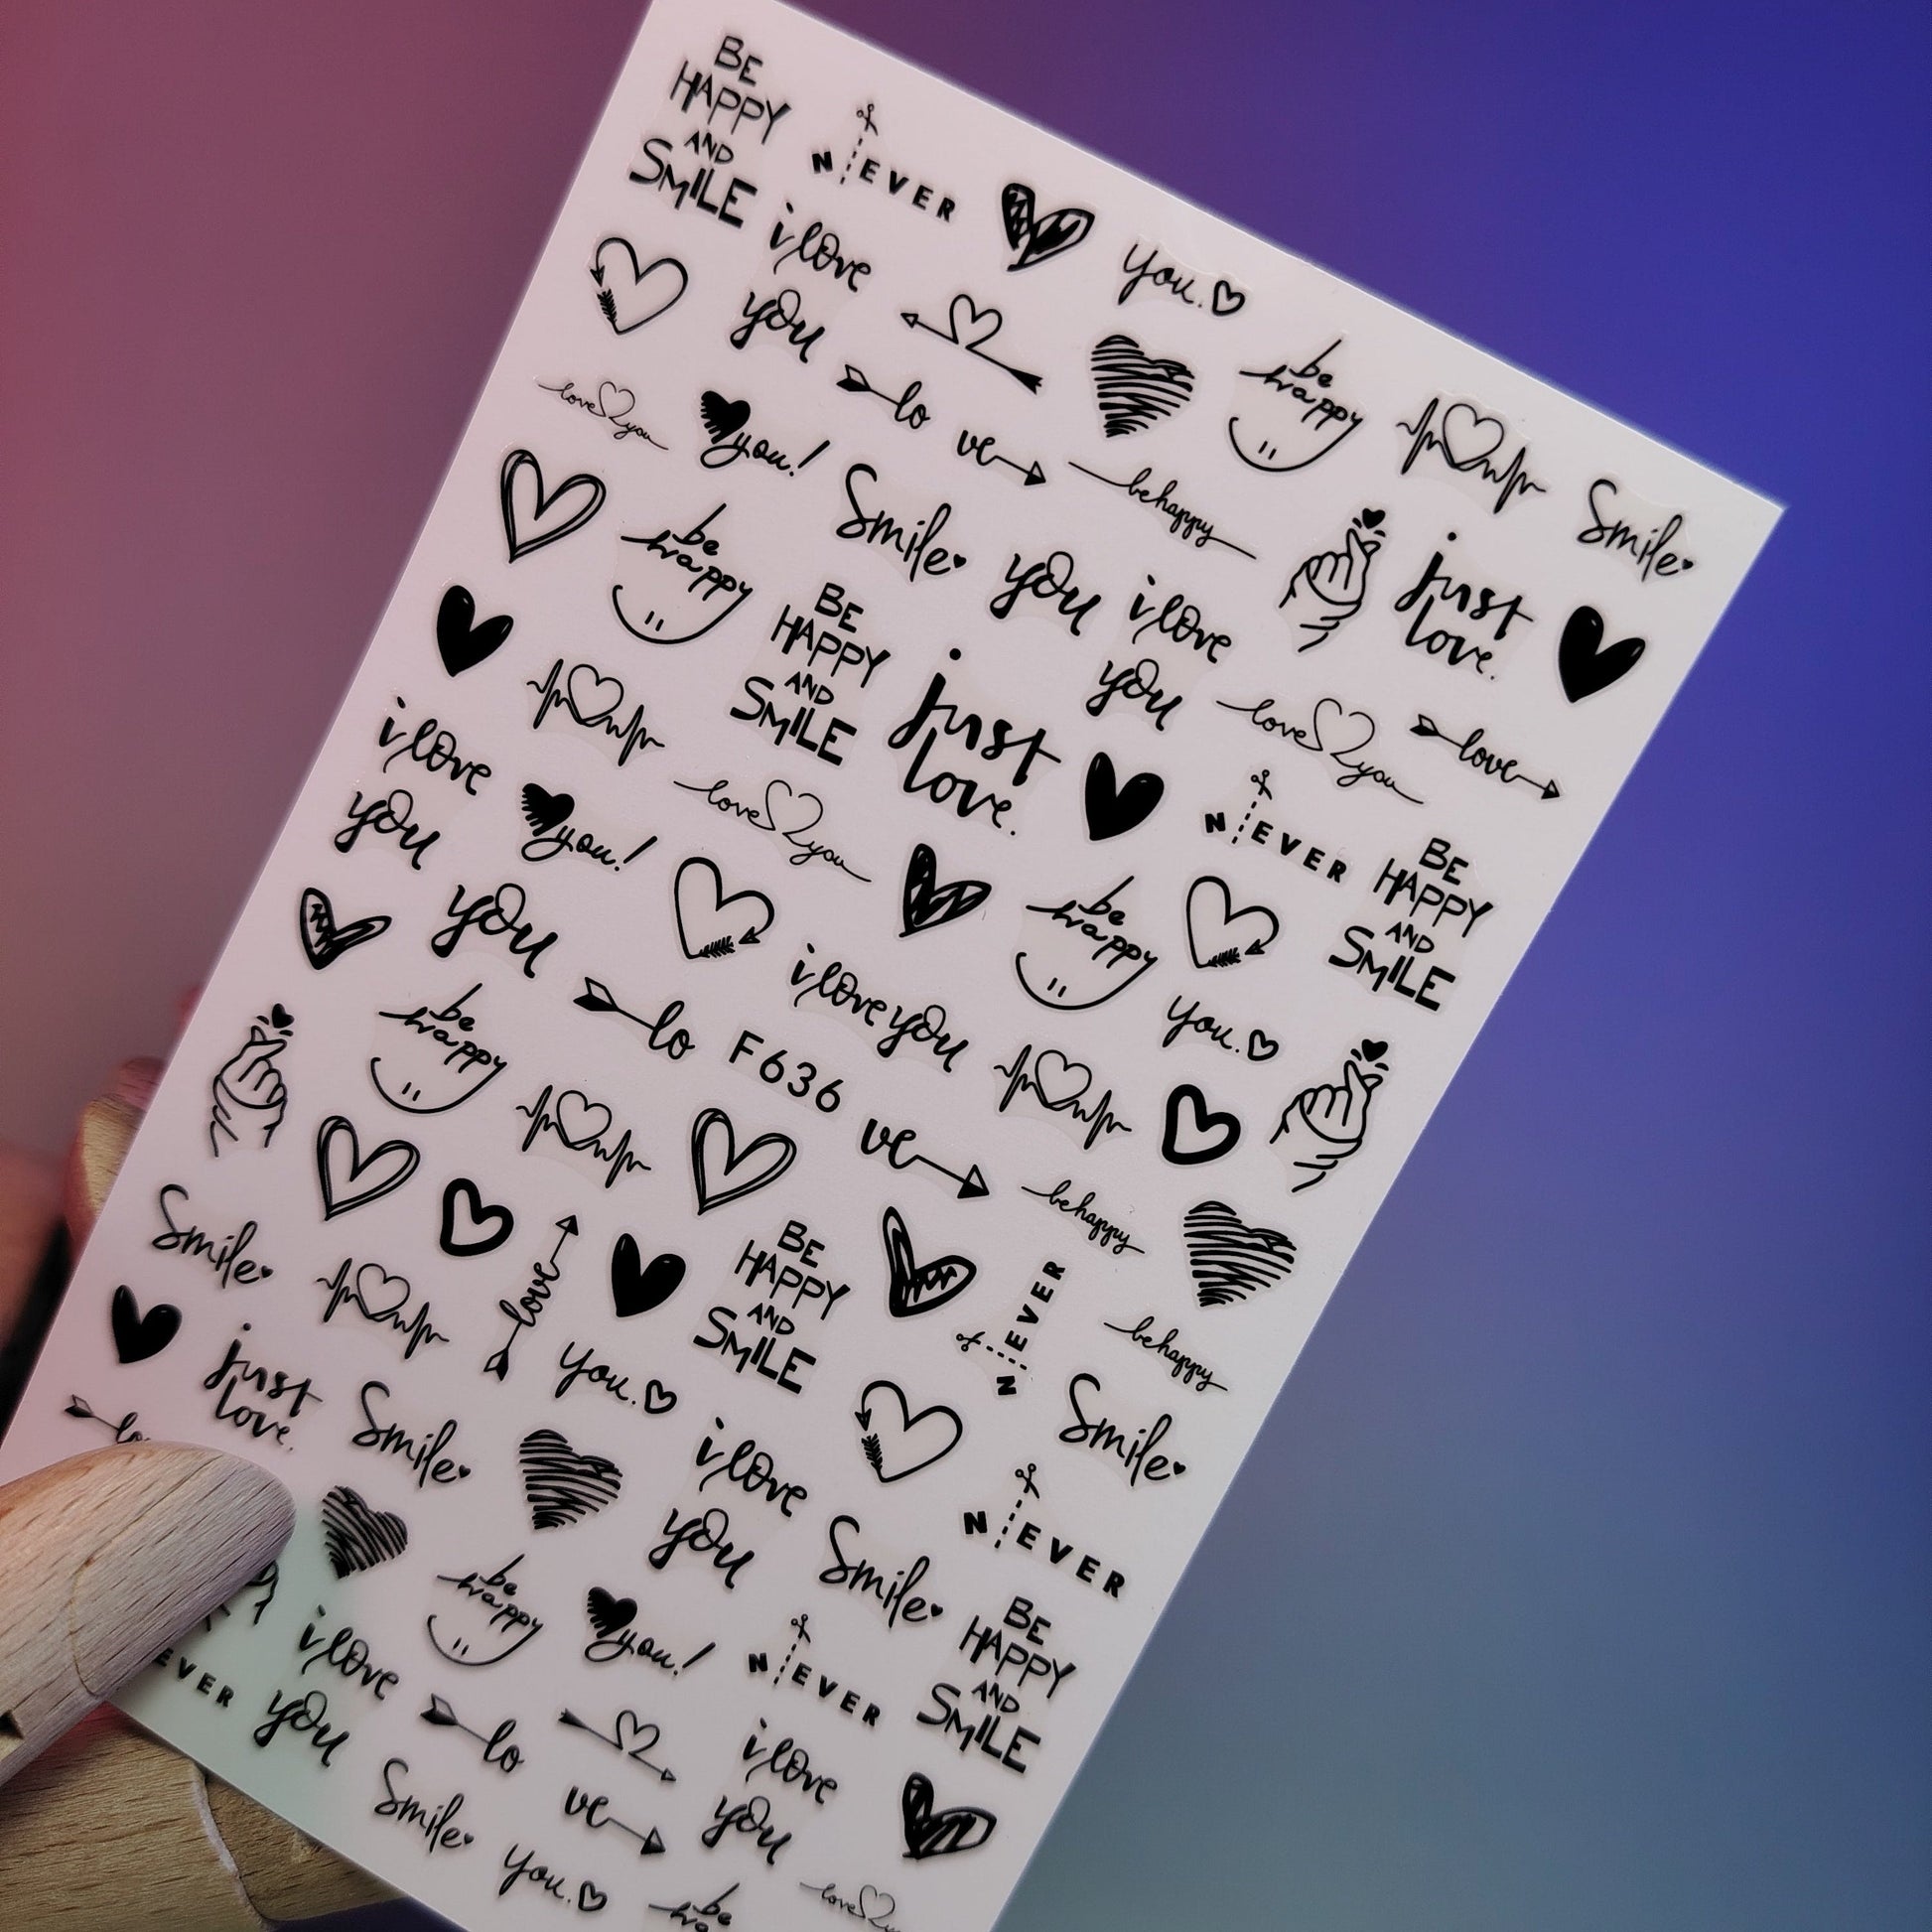 BE
HAPPY
AND
SMILE
N EVER
you.
i love
you
be
happy
Smile
love you
you!
lo ve
be happy
just
love.
be
happy
Smile
you
i love
you
love you
love
BE
HAPPY
AND
SMILE
just
love.
N EVER
BE
HAPPY
AND
SMILE
i love
you
you!
love you
be
happy
you.
you
i love you
be
happy
lo
F636
ve
be happy
Smile
love
BE
HAPPY
AND
SMILE
N EVER
be happy
just
love.
you.
Smile
Smile
lo
i love
you
Smile
N EVER
be
happy
you!
N EVER
BE
HAPPY
AND
SMILE
EVER
i love
you
lo
ve
i love
you
Smile
you.
be
love